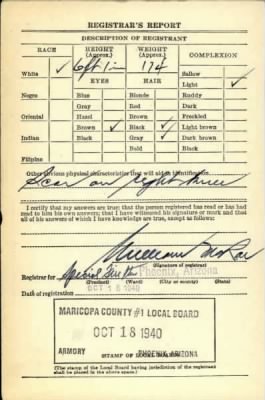 REGISTRAR'S REPORT
DESCRIPTION OF REGISTRANT
RACE HEIGHT (Approx.) WEIGHT (Approx.) COMPLEXION
White ✓ 6 ft 1 in 174 Sallow
EYES HAIR Light ✓
Negro Blue Blonde Ruddy
Gray Red Dark
Oriental Hazel Brown Freckled
Brown ✓ Black ✓ Light brown
Indian Black Gray Dark brown
Bald Black
Filipino
Other obvious physical characteristics that will aid in identification
Scar on right knee
I certify that my answers are true; that the person registered has read or has had
read to him his own answers; that I have witnessed his signature or mark and that
all of his answers of which I have knowledge are true, except as follows:
William
(Signature of registrar)
Registrar for Special Phoenix, Arizona
(Precinct) (Ward) (City or county) (State)
Date of registration OCT 18 1940
MARICOPA COUNTY #1 LOCAL BOARD
OCT 18 1940
ARMORY PHOENIX, ARIZONA
(STAMP OF LOCAL BOARD)
(The stamp of the Local Board having jurisdiction of the registrant
shall be placed in the above space.)